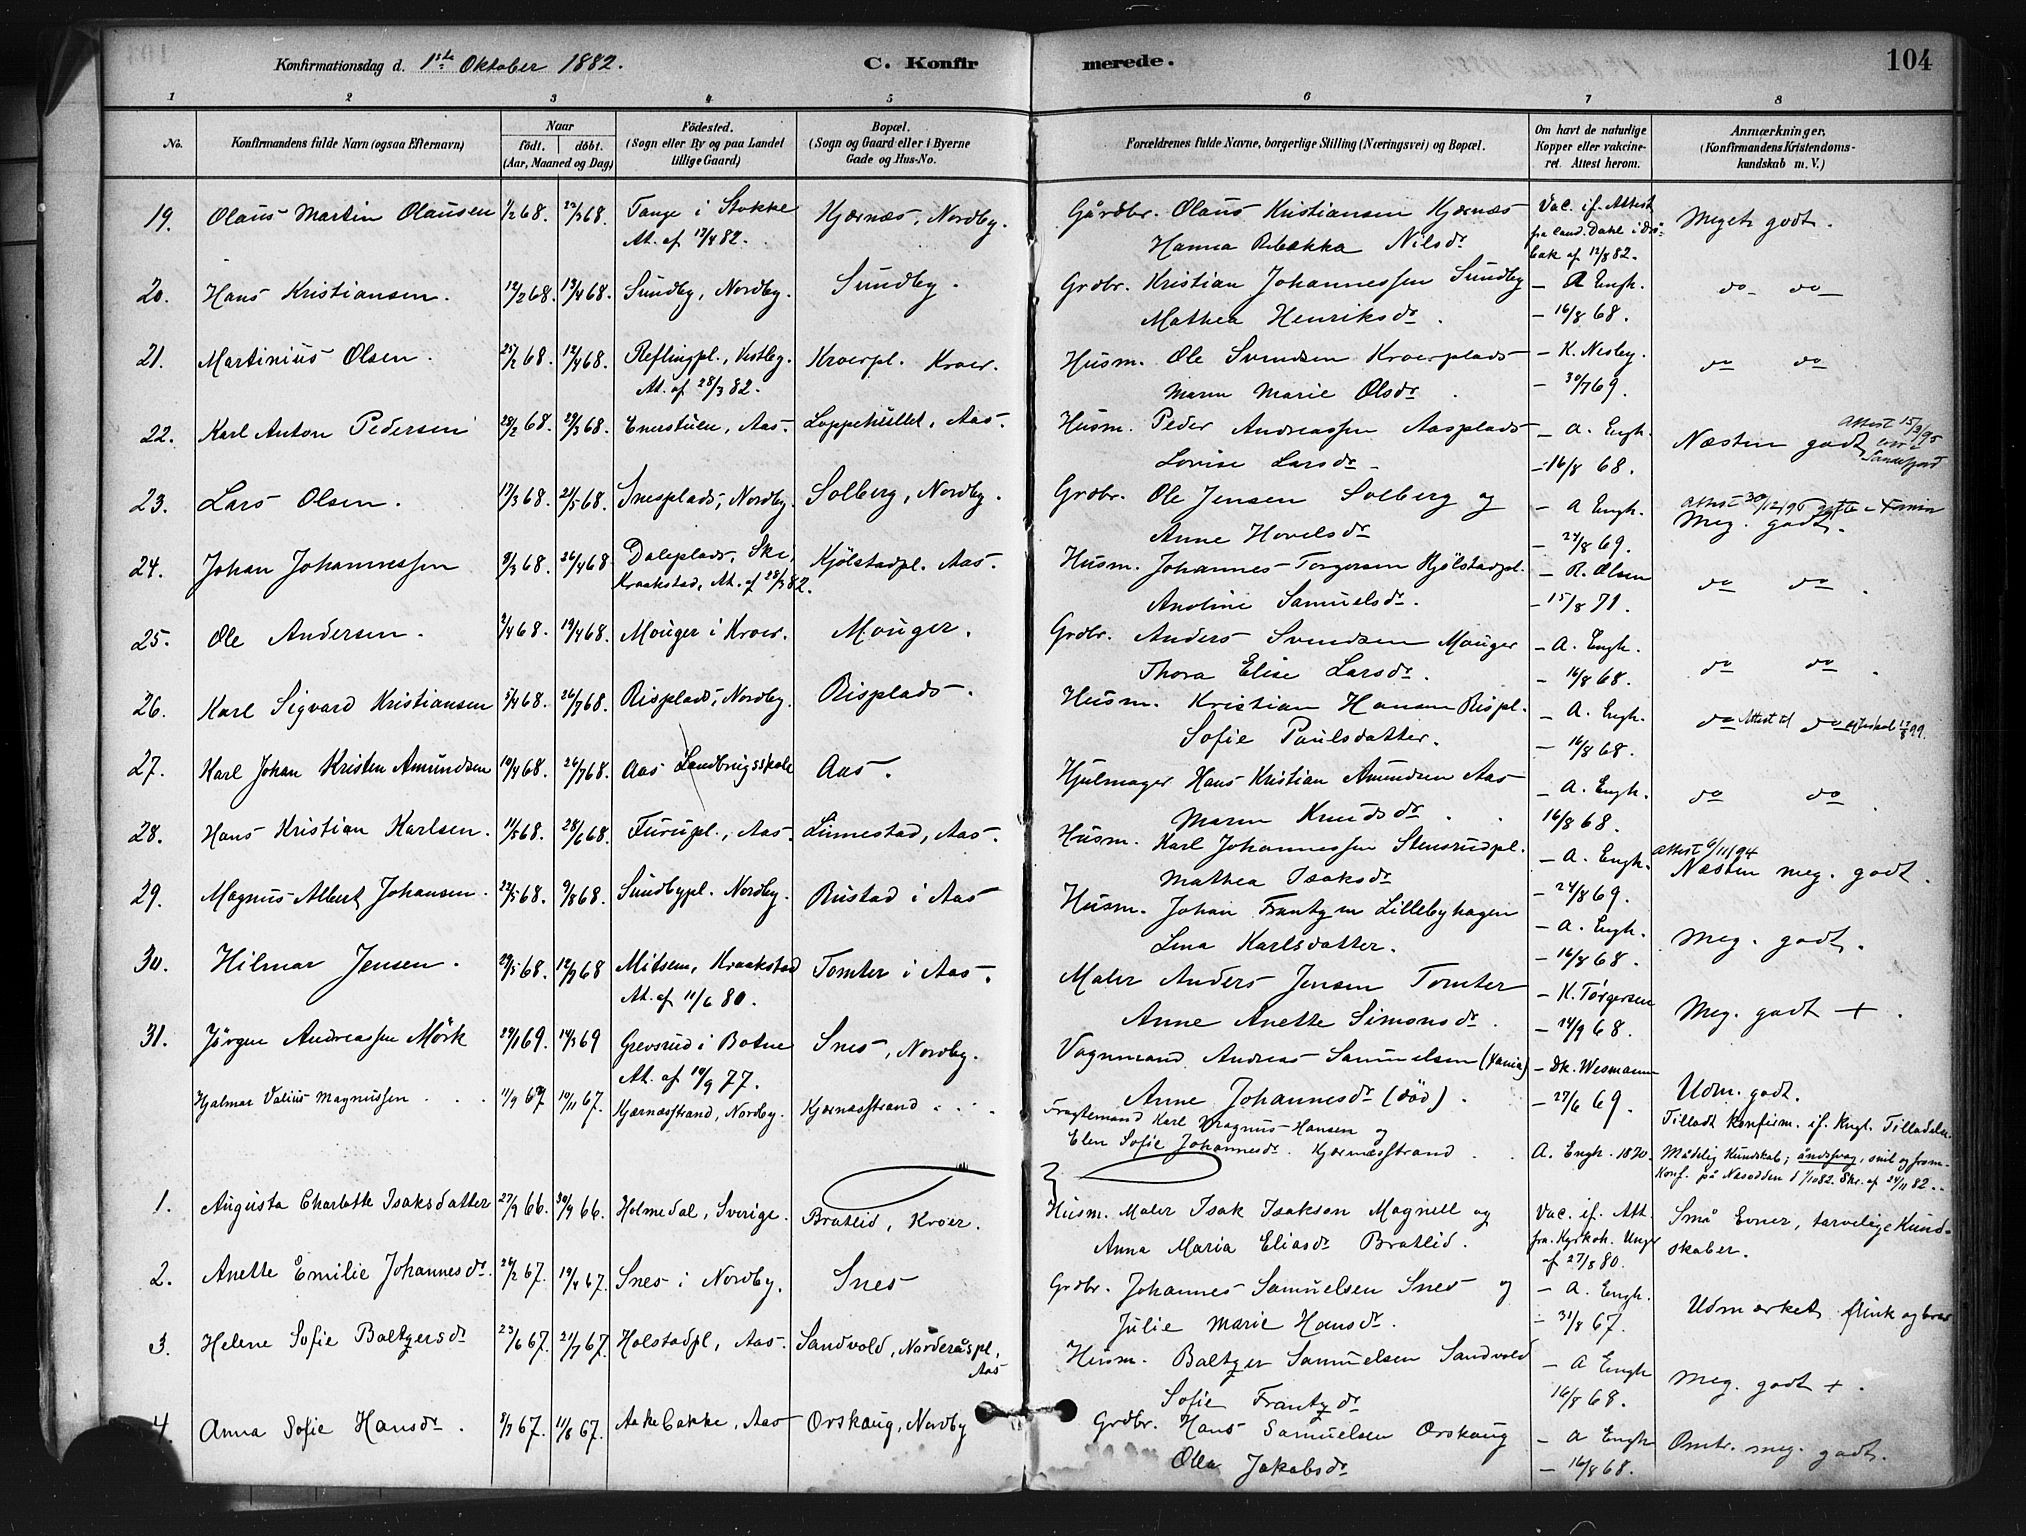 Konfirmationsdag d. 1ste Oktober 1882. C. Konfirmerede. 104
1 2 3 4 5 6 7 8
No. Konfirmandens fulde Navn (ogsaa Efternavn) Naar født. døbt. (Aar, Maaned og Dag) Fødested. (Sogn eller By og paa Landet tillige Gaard) Bopæl. (Sogn og Gaard eller i Byerne Gade og Hus-No. Forældrenes fulde Navne, borgerlige Stilling (Næringsvei) og Bopæl. Om havt de naturlige Kopper eller vakcineret. Attest herom. Anmærkninger, (Konfirmandens Kristendomskundskab m. V.)
19. Olaus Martin Olausen 1/2 68. 22/3 68. Tange i Stokke Hjærnæs, Nordby. Gårdbr. Olaus Kristiansen Kjærnæs Vac. if. Attest Meget godt.
At. af 12/4 82. Hanna Rebækka Nilsdr fra Cand. Dahl i Drøbak af 12/8 82.
20. Hans Kristiansen. 12/2 68. 13/4 68. Sundby, Nordby. Sundby. Grdbr. Kristian Johannessen Sundby — A Engh. do do
Mathea Henriksdr. — 16/8 68.
21. Martinius Olsen. 25/2 68. 12/4 68. Reflingpl., Vestby. Kroerpl. Kroer. Husm. Ole Svendsen Kroerplads — K. Nesby. do do
At. af 28/3 82. Maren Marie Olsdr — 30/7 69.
22. Karl Anton Pedersen 28/2 68. 29/3 68. Enerstuen, Aas. Loppehullet, Aas. Husm. Peder Andreassen Aasplads — A. Engh. Næsten godt Attest 15/3/95 Sandefjord
Lovise Larsdr — 16/8 68.
23. Lars Olsen. 17/3 68. 21/5 68. Snesplads, Nordby. Solberg, Nordby. Grdbr. Ole Jensen Solberg og — A Engh. Attest 30/12/96
Anne Hovelsdr — 24/8 69. Meg. godt.
24. Johan Johannessen 8/3 68. 26/4 68 Daleplads, Ski, Kjølstadpl. Aas. Husm. Johannes Torgersen Kjølstadpl. — R. Olsen do do
Kraakstad, At. af 28/3 82. Anoline Samuelsdr. — 15/8 71.
25. Ole Andersen. 2/4 68. 19/4 68. Mouger i Kroer. Mouger. Grdbr. Anders Svendsen Mouger — A. Engh. do do
Thora Elise Larsdr. — 16/8 68.
26. Karl Sigvard Kristiansen 5/4 68. 26/7 68. Risplads, Nordby. Risplads. Husm. Kristian Hansen Rispl. — A. Engh. do Attest til do
Sofie Paulsdatter. — 16/8 68.
27. Karl Johan Kristen Amundsen 19/4 68. 26/7 68. Aas Landbrugsskole Aas. Hjulmager Hans Kristian Amundsen Aas — A. Engh. do do
Maren Knudsdr. 16/8 68.
28. Hans Kristian Karlsen. 11/5 68. 28/6 68. Furupl., Aas. Linnestad, Aas. Husm. Karl Johannessen Stensrudpl. — A. Engh. Attest 6/11/94
Mathea Isaksdr — 24/8 69. Næsten meg. godt.
29. Magnus Albert Johansen. 22/5 68. 9/8 68. Sundbypl. Nordby. Rustad i Aas Husm. Johan Frantzen Lillebyhagen — A. Engh. Meg. godt.
Lina Karlsdatter. — 16/8 68.
30. Hilmar Jensen. 29/5 68. 12/7 68 Mitsem, Kraakstad Tomter i Aas. Maler Anders Jensen Tomter — K. Torgersen Meg. godt +.
At. af 11/6 80. Anne Anette Simonsdr. — 14/9 68.
31. Jørgen Andreassen Mörk 29/1 69. 14/3 69 Grevsrud i Botne Snes, Nordby. Vognmand Andreas Samuelsen (Xania) — Dk. Wesmann Udm. godt.
At. af 19/9 77. Anne Johannesdr (død). — 27/6 69.
Hjalmar Valius Magnussen 11/9 67 10/11 67. Kjærnæsstrand, Nordby. Kjærnæsstrand Fragtemand Karl Magnus Hansen og Tilladt Konfirm. if. Kngl. Tilladelse.
Elen Sofie Johannesdr. Kjærnæsstrand. A. Engh. 1870. Mådelig Kundskab; åndssvag, snil og from.
Konf. på Nesodden d 1/10 82. Skr. af 24/11 82.
1. Augusta Charlotte Isaksdatter 27/9 66. 30/9 66. Holmedal, Sverige. Bratlid, Kroer. Husm. Maler Isak Isaksen Magnell og Vac. if. Att. Små Evner, tarvelige Kundskaber.
Anna Maria Eliasdr Bratlid. fra. Kyrkoh. Unger af 27/8 80.
2. Anette Emilie Johannesdr. 24/2 67. 19/4 67. Snes i Nordby. Snes Grdbr. Johannes Samuelsen Snes og — A. Engh. Udmærket flink og brav
Julie Marie Hansdr. — 31/8 67.
3. Helene Sofie Baltzersdr 23/6 67. 21/7 67. Holstadpl, Aas. Sandvold, Norderåspl, Aas Husm. Baltzer Samuelsen Sandvold — A Engh Meg. godt +.
Sofie Frantzdr 16/8 68.
4. Anna Sofie Hansdr. 8/7 67. 11/8 67. Aakebakke, Aas Orskaug, Nordby Grdbr. Hans Samuelsen Orskaug — A Engh Omtr. meg. godt.
Olea Jakobsdr — 16/8 68.